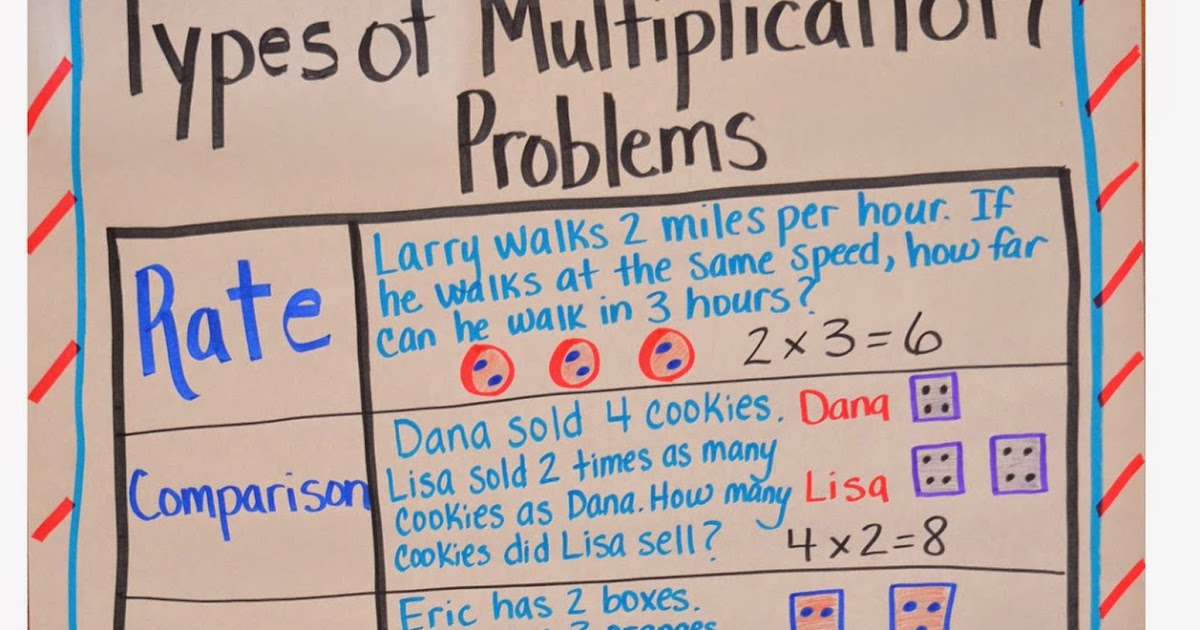 Types of Multiplication
Problems
Rate
Larry walks 2 miles per hour. If
he walks at the same speed, how far
can he walk in 3 hours?
2 x 3 = 6
Comparison
Dana sold 4 cookies.
Lisa sold 2 times as many
cookies as Dana. How many
cookies did Lisa sell?
Dana
Lisa
4 x 2 = 8
Eric has 2 boxes.
3 oranges